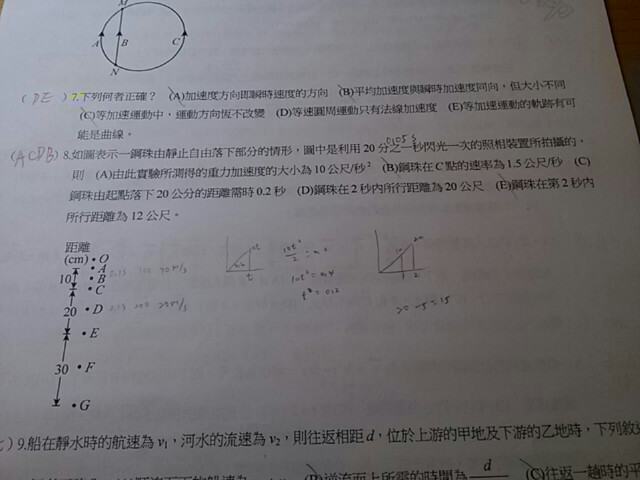 M
A B C
N
(DE) 7.下列何者正確? (A)加速度方向即瞬時速度的方向 (B)平均加速度與瞬時加速度同向,但大小不同
(C)等加速運動中,運動方向恆不改變 (D)等速圓周運動只有法線加速度 (E)等加速運動的軌跡有可
能是曲線。
0.05 s
(ACDB) 8.如圖表示一鋼珠由靜止自由落下部分的情形,圖中是利用20分之一秒閃光一次的照相裝置所拍攝的,
則 (A)由此實驗所測得的重力加速度的大小為10公尺/秒² (B)鋼珠在C點的速率為1.5公尺/秒 (C)
鋼珠由起點落下20公分的距離需時0.2秒 (D)鋼珠在2秒內所行距離為20公尺 (E)鋼珠在第2秒內
所行距離為12公尺。
距離
(cm) O
A
10 B
C
20 D
E
30 F
G
10t
t
10t²
2
t² = 0.2
10 20
1 2
20 - 5 = 15
)9.船在靜水時的航速為v₁,河水的流速為v₂,則往返相距d,位於上游的甲地及下游的乙地時,下列敘
(B)逆流而上所需的時間為 d (C)往返一趟時的平